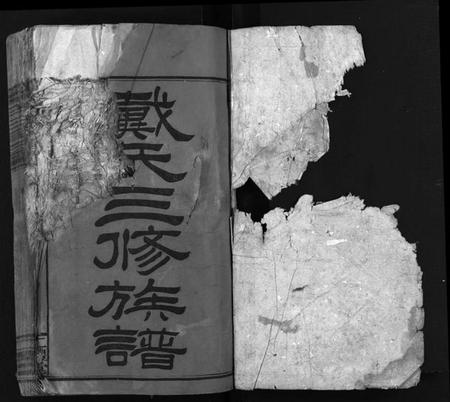 戴氏三修族譜